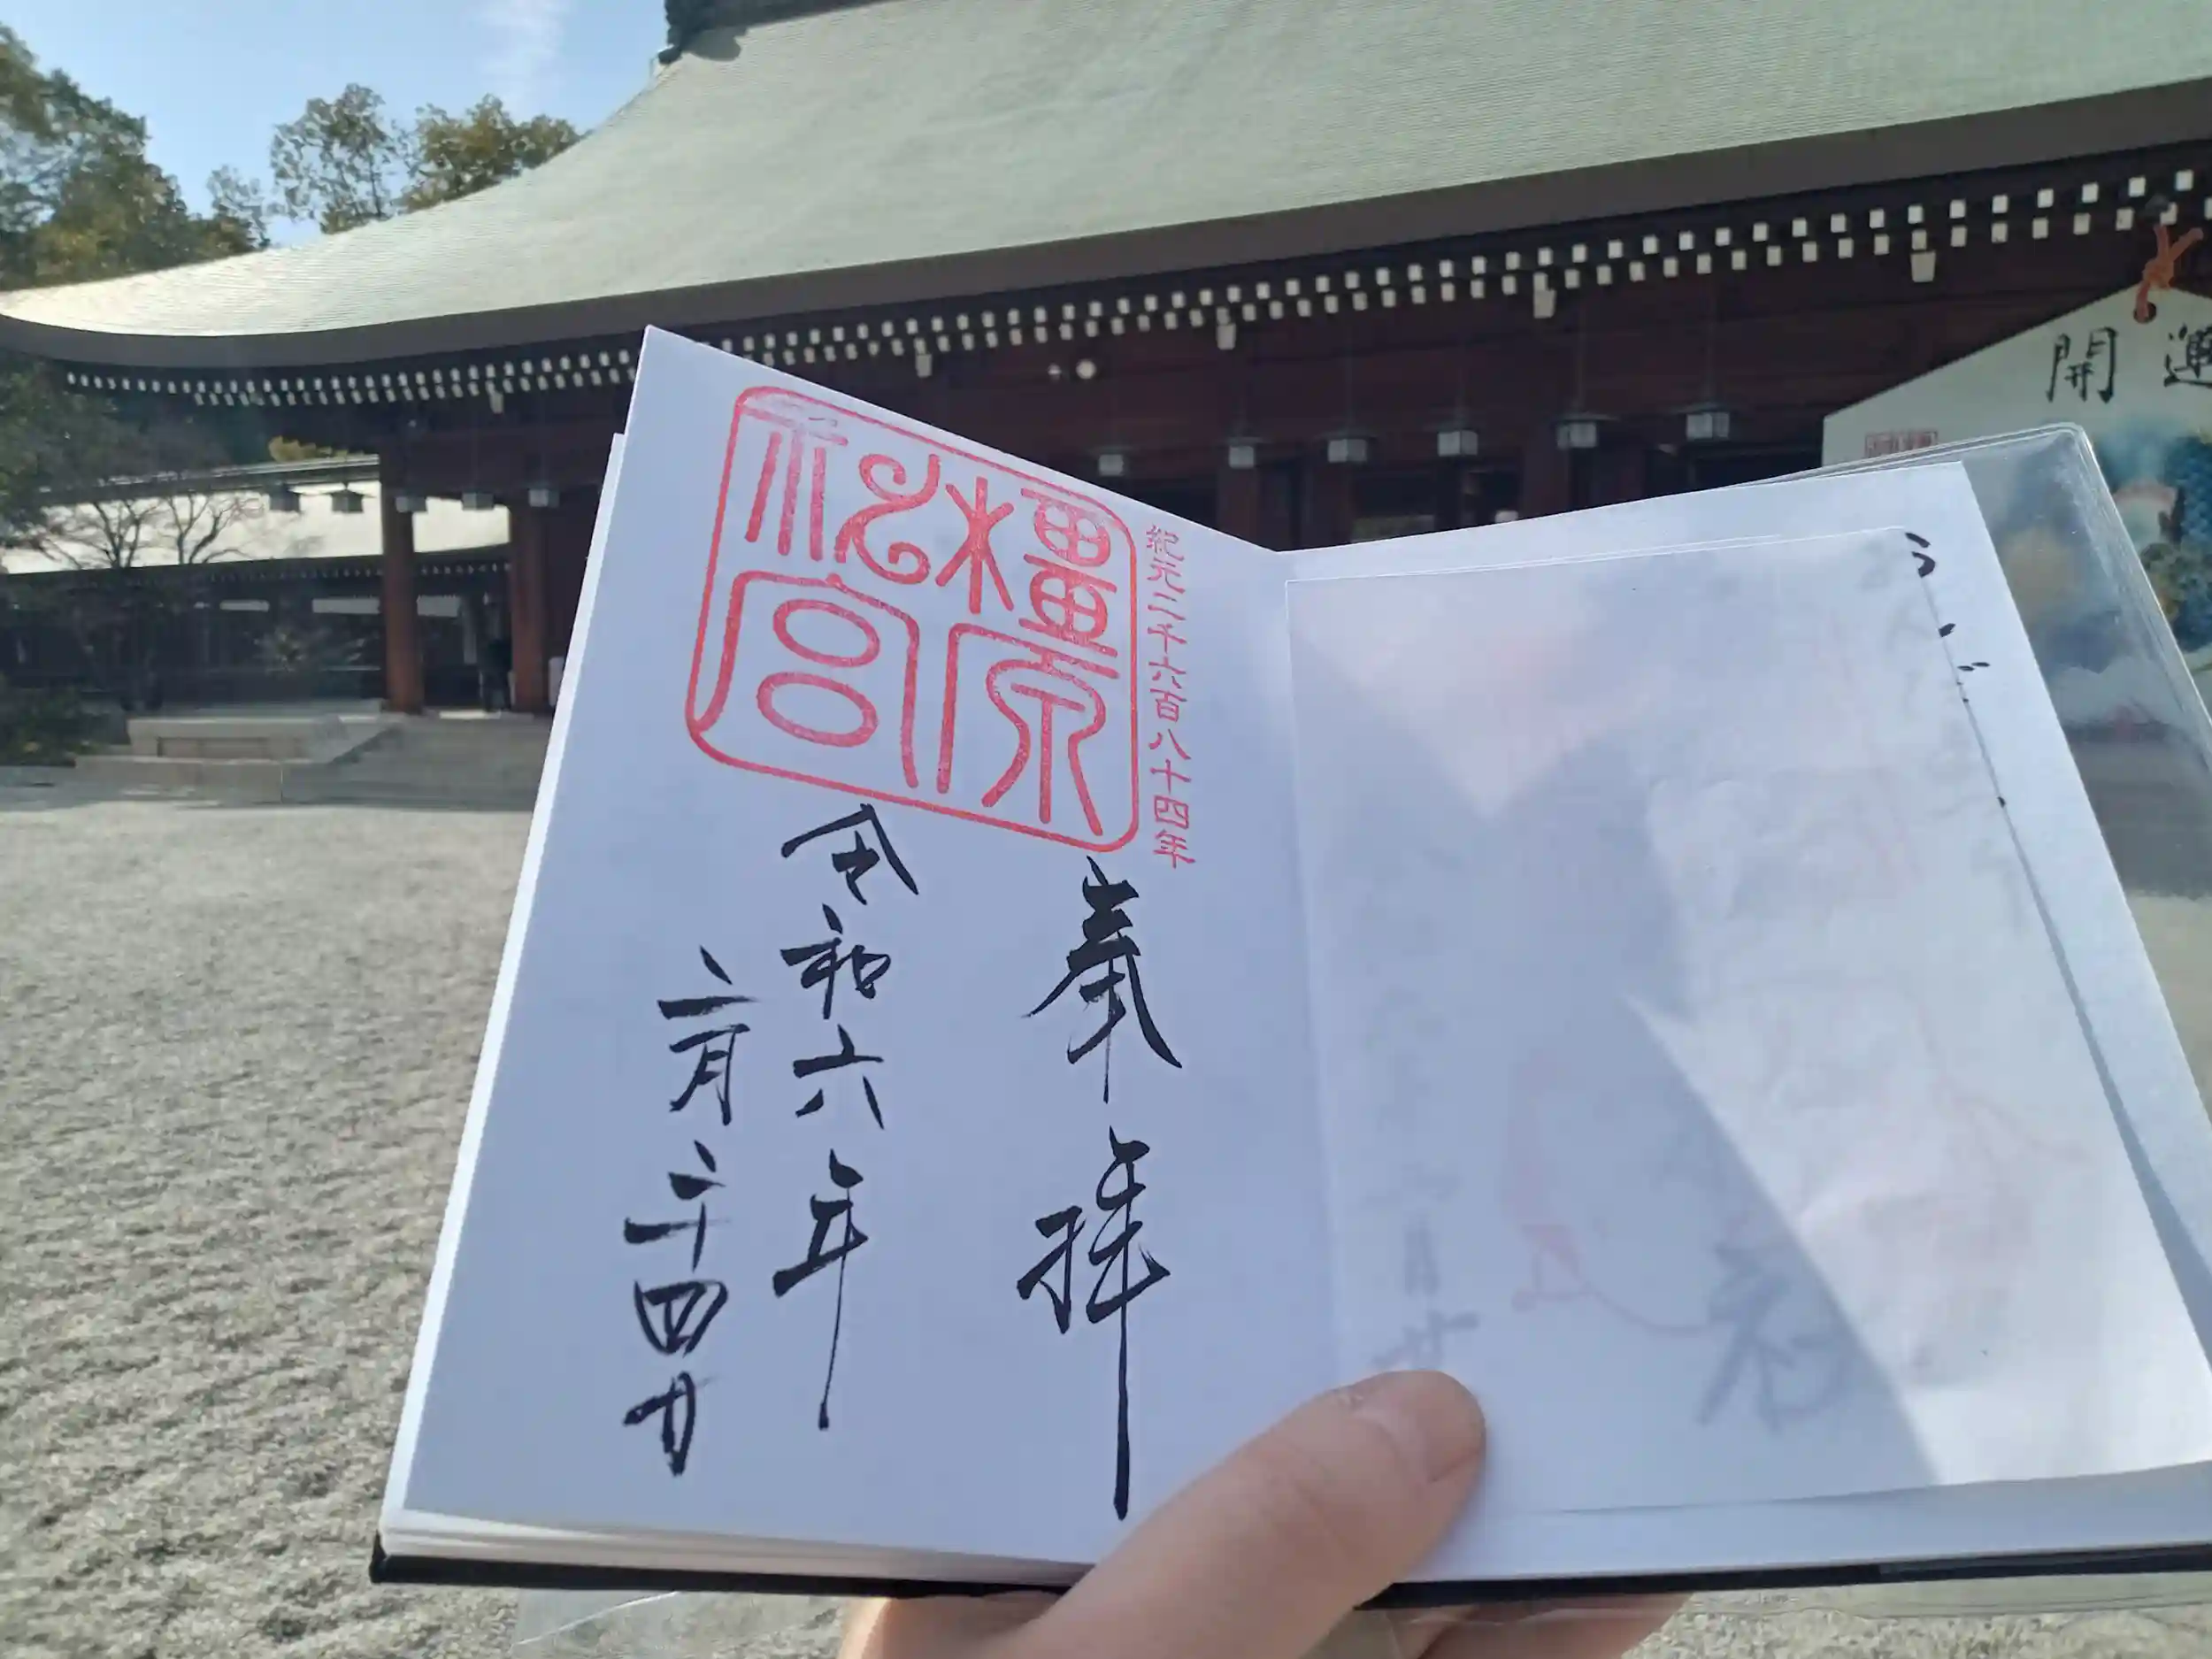 紀元二千六百八十四年
橿原
神宮
奉拝
令和六年
二月二十四日
開運